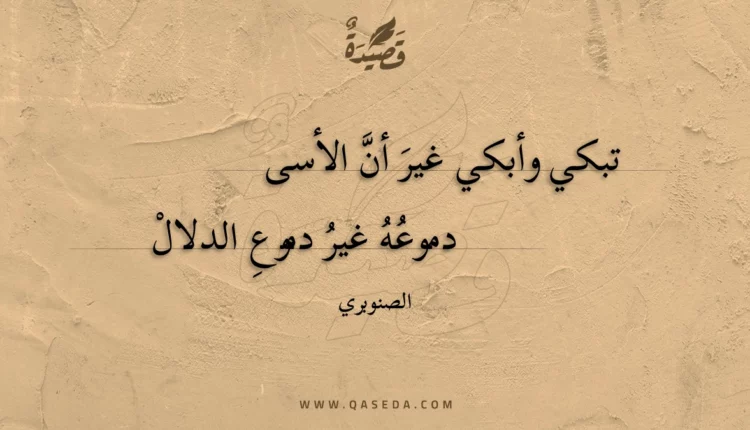 قَصِيدَةٌ
تبكي وأبكي غيرَ أنَّ الأسى
دموعُهُ غيرُ دموعِ الدلالْ
الصنوبري
WWW.QASEDA.COM